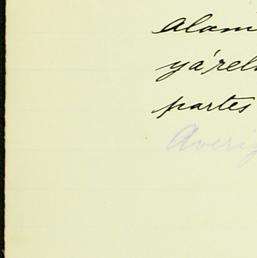 alam
y á rel
partes
Averig